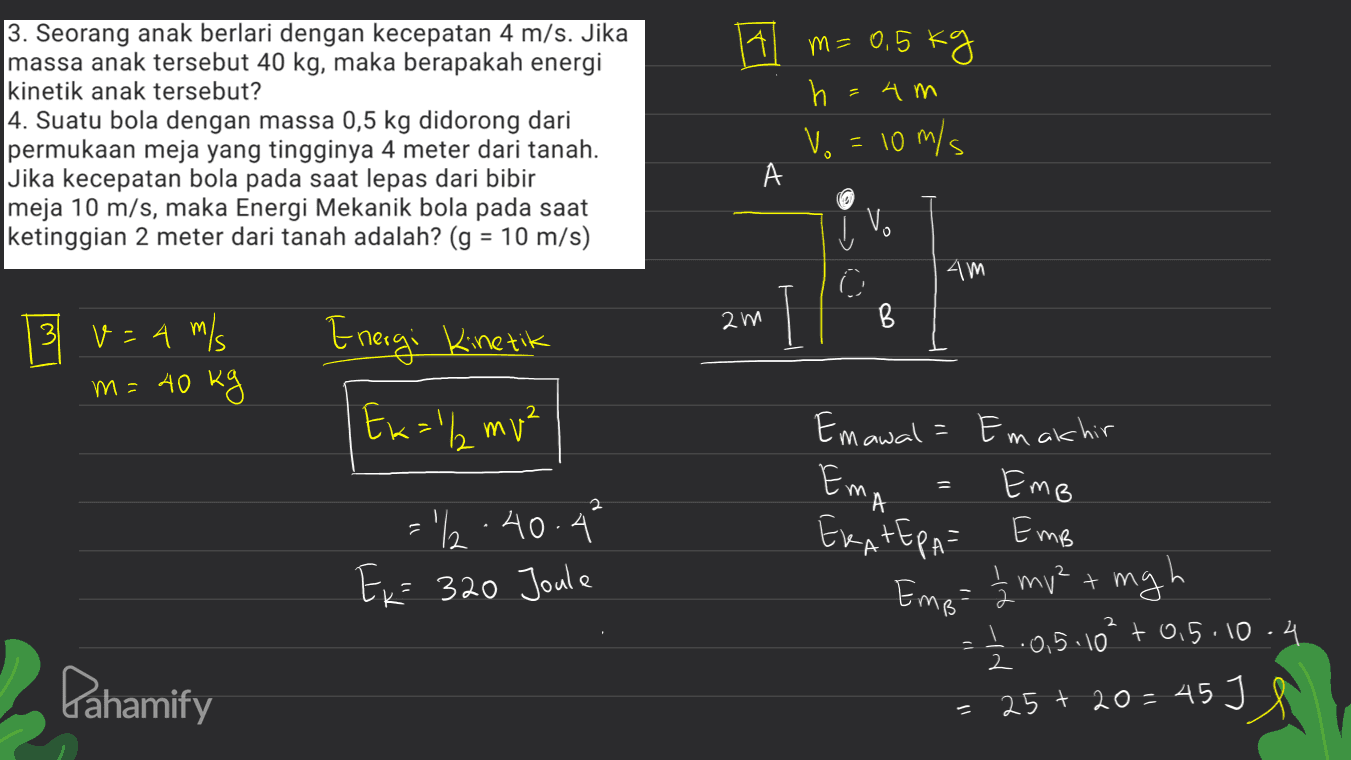 3. Seorang anak berlari dengan kecepatan 4 m/s. Jika
massa anak tersebut 40 kg, maka berapakah energi
kinetik anak tersebut?
4. Suatu bola dengan massa 0,5 kg didorong dari
permukaan meja yang tingginya 4 meter dari tanah.
Jika kecepatan bola pada saat lepas dari bibir
meja 10 m/s, maka Energi Mekanik bola pada saat
ketinggian 2 meter dari tanah adalah? (g = 10 m/s)
3 v = 4 m/s
m = 40 kg
Energi Kinetik
Ek = 1/2 mv²
= 1/2 . 40 . 4²
Ek = 320 Joule
4 m = 0,5 kg
h = 4 m
V₀ = 10 m/s
A
V₀
4m
2m
B
Em awal = Em akhir
Em A = Em B
Ek A + Ep A = Em B
Em B = 1/2 mv² + mgh
= 1/2 . 0,5 . 10² + 0,5 . 10 . 4
= 25 + 20 = 45 J
Pahamify